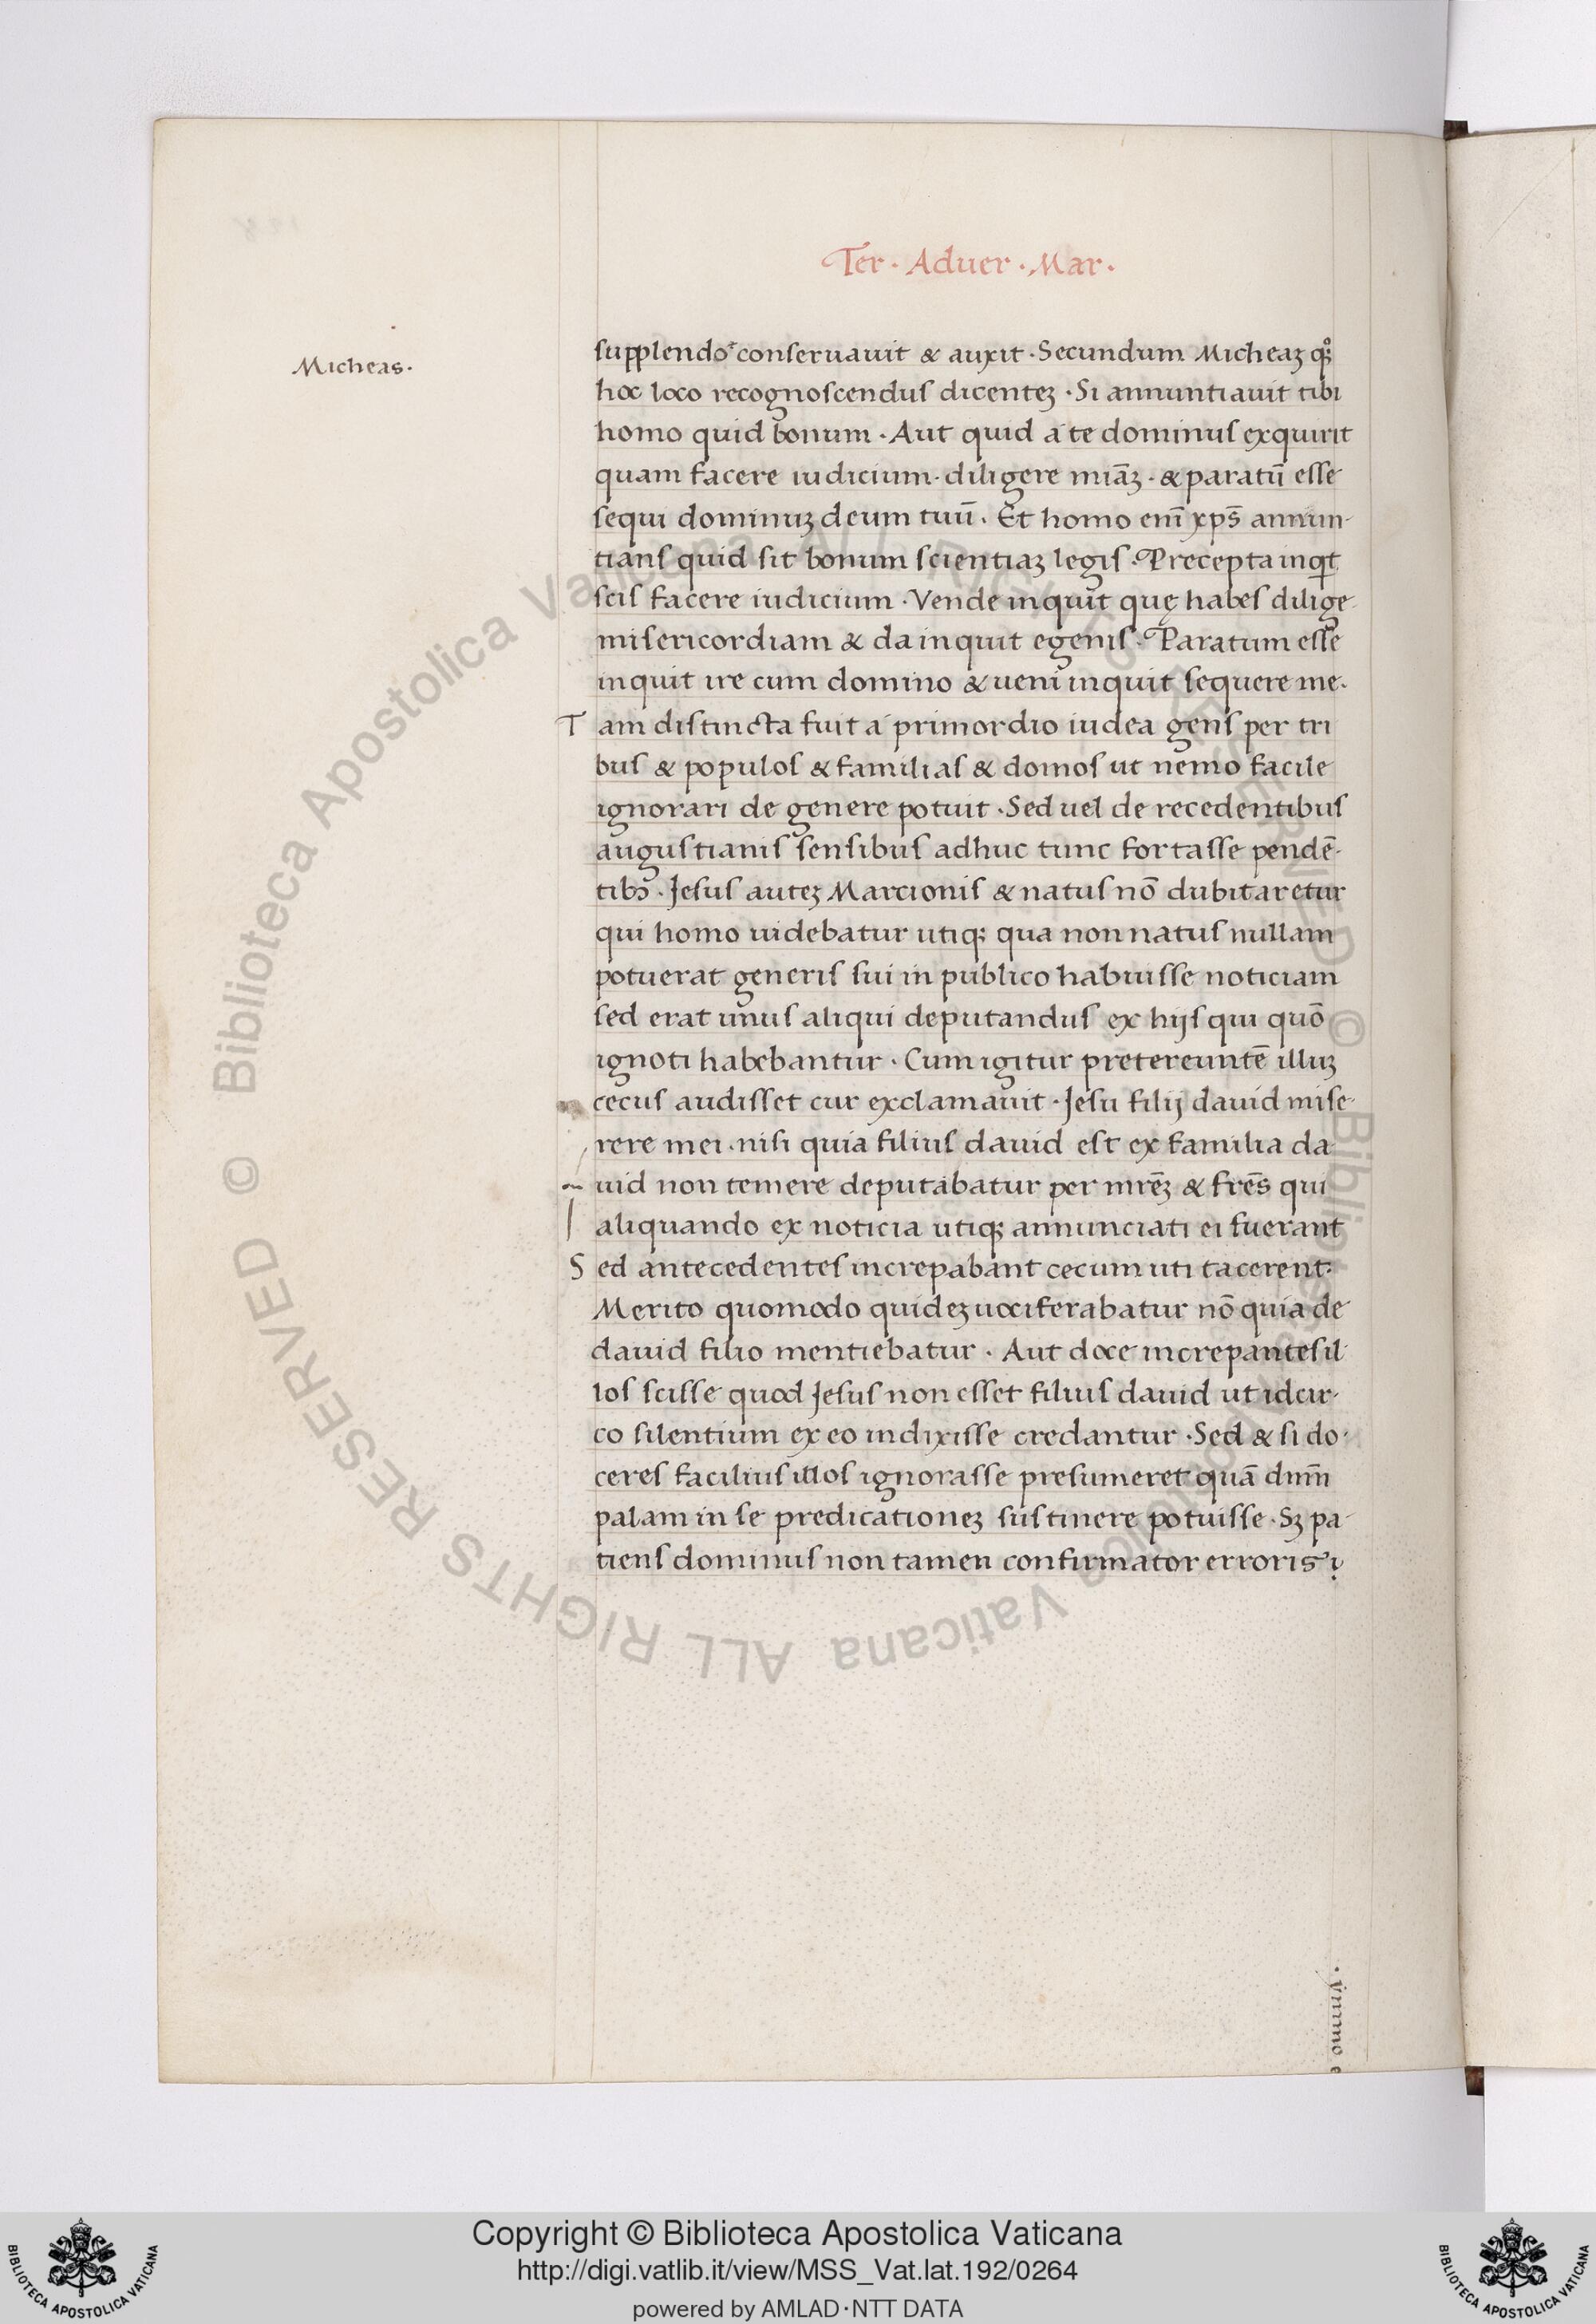 Ter · Aduer · Mar ·
Micheas ·
supplendo conseruauit & auxit · Secundum Micheaȝ
hoc loco recognoscendus dicenteȝ · Si annuntiauit tibi
homo quid bonum · Aut quid a te dominus exquirit
quam facere iudicium · diligere miāȝ · & paratū esse
sequi dominuȝ deum tuū · Et homo enī xp̄s annun-
tians quid sit bonum scientiaȝ legis · Precepta inqt
scis facere iudicium · Vende inquit quę habes dilige
misericordiam & da inquit egenis · Paratum esse
inquit ire cum domino & ueni inquit sequere me ·
T am distincta fuit a primordio iudea gens per tri
bus & populos & familias & domos ut nemo facile
ignorari de genere potuit · Sed uel de recedentibus
augustianis sensibus adhuc tunc fortasse pendē-
tibꝫ · Jesus auteȝ Marcionis & natus nō dubitaretur
qui homo uidebatur utiqꝫ qua non natus nullam
potuerat generis sui in publico habuisse noticiam
sed erat unus aliqui deputandus ex hijs qui quō
ignoti habebantur · Cum igitur pretereuntē illuȝ
cecus audisset cur exclamauit · Jesu filij dauid mise-
rere mei · nisi quia filius dauid est ex familia da
uid non temere deputabatur per mrēȝ & frēs qui
aliquando ex noticia utiqꝫ annunciati ei fuerant
S ed antecedentes increpabant cecum uti tacerent:
Merito quomodo quideȝ uociferabatur nō quia de
dauid filio mentiebatur · Aut doce increpantes il
los scisse quod Jesus non esset filius dauid ut idcir-
co silentium ex eo indixisse credantur · Sed & si do-
ceres facilius illos ignorasse presumeret quā dnm̄
palam in se predicationeȝ sustinere potuisse · Sȝ pa-
tiens dominus non tamen confirmator erroris
· ymmo e
© Biblioteca Apostolica Vaticana ALL RIGHTS RESERVED © Biblioteca Apostolica Vaticana ALL RIGHTS RESERVED
Copyright © Biblioteca Apostolica Vaticana
http://digi.vatlib.it/view/MSS_Vat.lat.192/0264
powered by AMLAD·NTT DATA
BIBLIOTECA APOSTOLICA VATICANA
BIBLIOTECA APOSTOLICA VATICANA